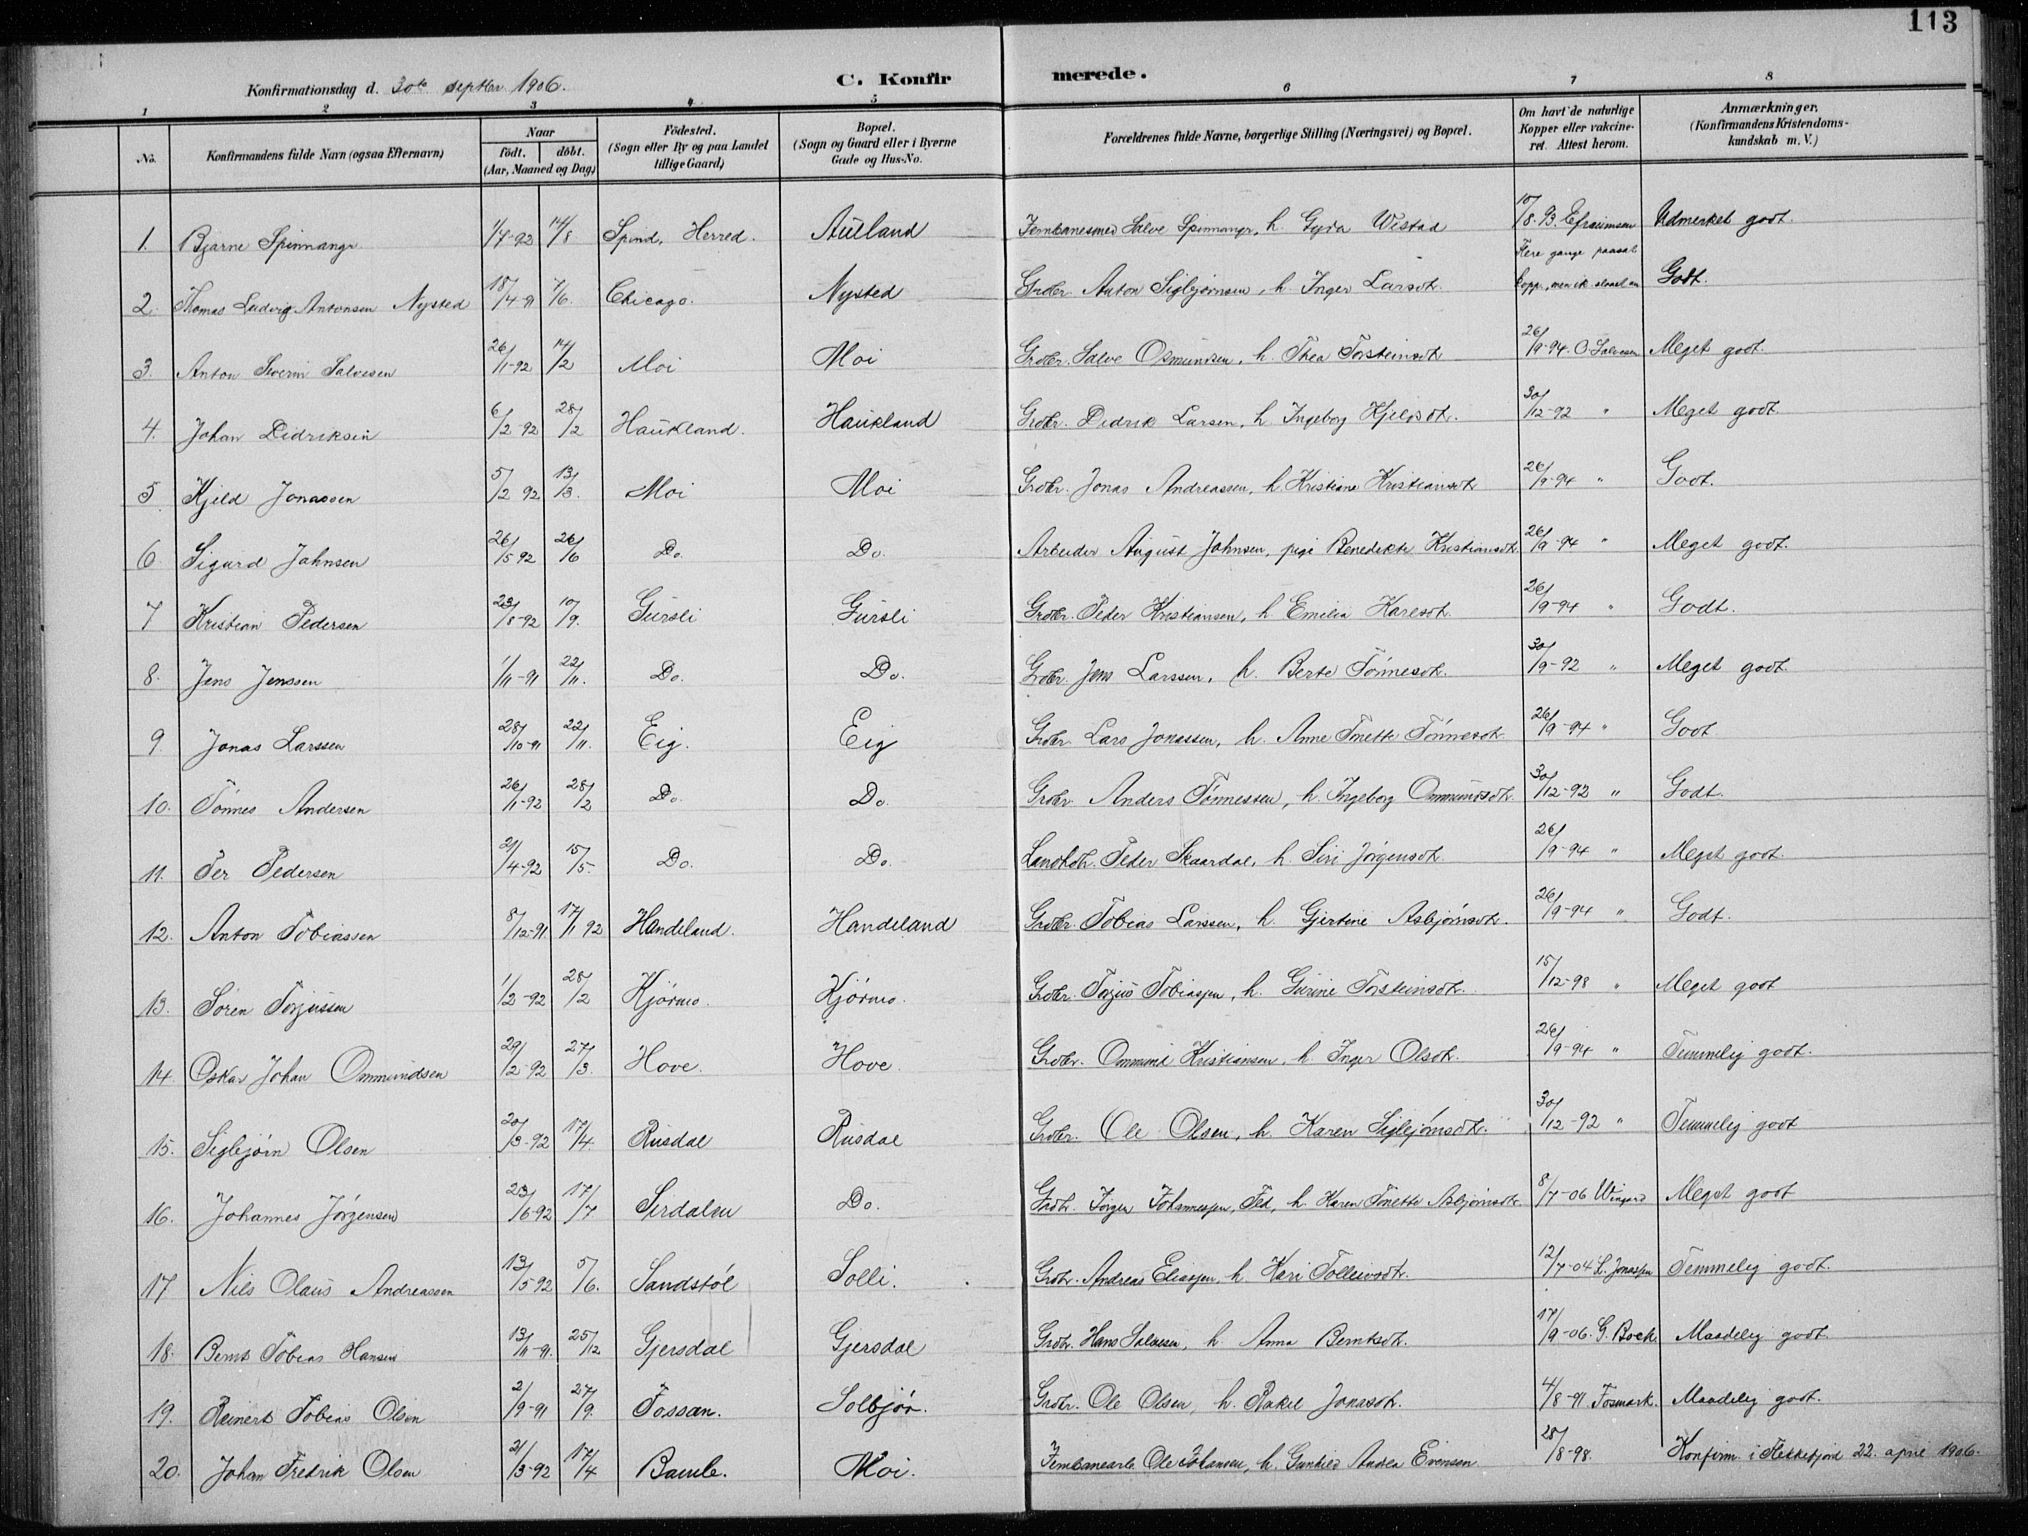 113
Konfirmationsdag d. 30te septbr. 1906.
C. Konfirmerede.
1 2 3 4 5 6 7 8
No.
Konfirmandens fulde Navn (ogsaa Efternavn)
Naar
födt. döbt.
(Aar, Maaned og Dag)
Födested.
(Sogn eller By og paa Landet
tillige Gaard)
Bopæl.
(Sogn og Gaard eller i Byerne
Gade og Hus-No.
Forældrenes fulde Navne, borgerlige Stilling (Næringsvei) og Bopæl.
Om havt de naturlige
Kopper eller vakcine-
ret. Attest herom.
Anmærkninger.
(Konfirmandens Kristendoms-
kundskab m. V.)
1. Bjarne Spinnangr 1/4-92 14/8 Spind, Herred. Auland Jernbanesmed Salve Spinnangr, h. Gyda Wistad 10/8. B. Efraimsen Udmerket godt.
2. Thomas Ludvig Antonsen Nysted 18/4-91 7/6. Chicago. Nysted Grdbr. Anton Sigbjørnsen, h. Inger Larsdt. Flere gange paasat kopp., men ik slaat an Godt.
3. Anton Severin Salvesen 26/1-92 14/2 Moi Moi Grdbr. Salve Osmundsen, h. Thea Torsteinsdt. 26/9-94. O. Salvesen Meget godt.
4. Johan Didriksen 6/2-92 28/2 Haukland. Haukland Grdbr. Didrik Larsen, h. Ingeborg Kjeldsdt. 30/12-92 " Meget godt.
5 Kjeld Jonassen 5/2 92 13/3. Moi Moi Grdbr. Jonas Andreassen, h. Kristiane Kristiansdt. 26/9-94 " Godt.
6 Sigurd Johnsen 26/5 92 26/6 Do. Do. Arbeider August Johnsen, pige Benedikte Kristiansdt. 26/9-94 " Meget godt.
7 Kristian Pedersen 23/8-92 10/9. Gursli Gursli Grdbr. Peder Kristiansen, h Emilia Karlsdt. 26/9-94 " Godt.
8. Jens Jenssen 1/11-91 22/11. Do. Do. Grdbr. Jens Larssen, h. Berte Tønnesdt. 30/9-92 " Meget godt.
9. Jonas Larssen 28/10-91 22/11. Eig. Eig Grdbr. Lars Jonassen, h. Anne Tonette Tønnesdt. 26/9-94 " Godt
10. Tønnes Andersen 26/1-92 28/2 Do. Do. Grdbr. Anders Tønnessen, h. Ingeborg Ommundsdt. 30/12-92 " Godt.
11. Per Pedersen 21/4-92 15/5. Do. Do. Peder Skaardal, h. Siri Jørgensdt. 26/9-94 " Meget godt.
12. Anton Tobiassen 8/12-91 17/1 92 Handeland. Handeland Grdbr. Tobias Larssen, h. Gjertine Asbjørnsdt. 26/9-94 " Godt.
13. Søren Torjussen 1/2-92 28/2 Kjørmo. Kjørmo. Grdbr. Torjus Tobiassen, h. Gurine Torsteinsdt. 15/12-98 " Meget godt
14. Oskar Johan Ommundsen 29/2-92 27/3. Hove. Hove Grdbr. Ommund Kristiansen, h Inger Olsdt. 26/9-94 " Temmelig godt.
15. Sigbjørn Olsen 20/3-92 17/4. Rusdal Rusdal Grdbr. Ole Olsen, h. Karen Sigbjørnsdt. 30/12-92 " Temmelig godt
16. Johannes Jørgensen 23/6-92 17/7 Sirdalen Do. Grdbr. Jørgen Johannessen, Fed, h. Karen Tonette Asbjørnsdt. 8/7-06 Meget godt
17 Nils Olaus Andreassen 13/5 92 5/6. Sandstøl Solli. Grdbr. Andreas Eliassen h. Kari Tollevsdt. 12/7-04 L. Jonassen Temmelig godt.
18. Bernt Tobias Hansen 13/11-91. 25/12 Gjersdal Gjersdal Grdbr. Hans Salvesen, h. Anna Berntsdt. 17/9-06. G. Bock. Maadelig godt.
19. Reinert Tobias Olsen 2/9-91 27/9. Fossan. Solbjør. Grdbr. Ole Olsen, h. Rakel Jonasdt. 4/8-91 Fosmark. Maadelig godt.
20. Johan Fredrik Olsen 21/3-92 17/4 Bamle. Moi. Jernbanearb. Ole Johansen, h. Gunhild Andrea Evensen 28/8-98. Konfirm. i Flekkefjord 22. april 1906.